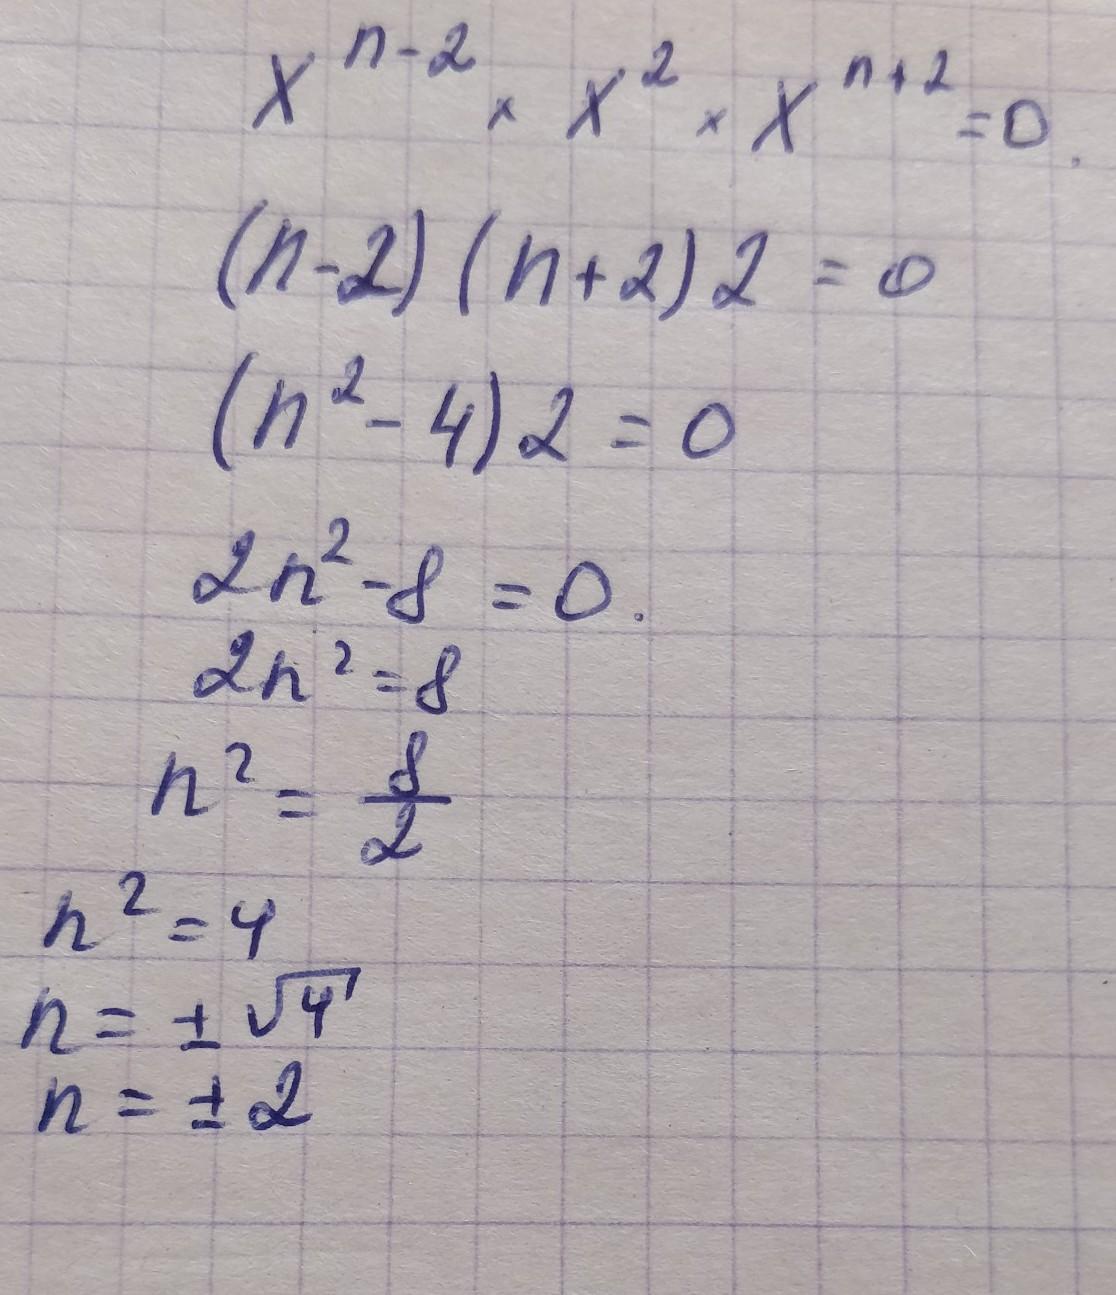 x^{n-2} × x^2 × x^{n+2} = 0.
(n-2)(n+2)2 = 0
(n^2-4)2 = 0
2n^2-8 = 0.
2n^2=8
n^2 = \frac{8}{2}
n^2=4
n = ± √4
n = ± 2